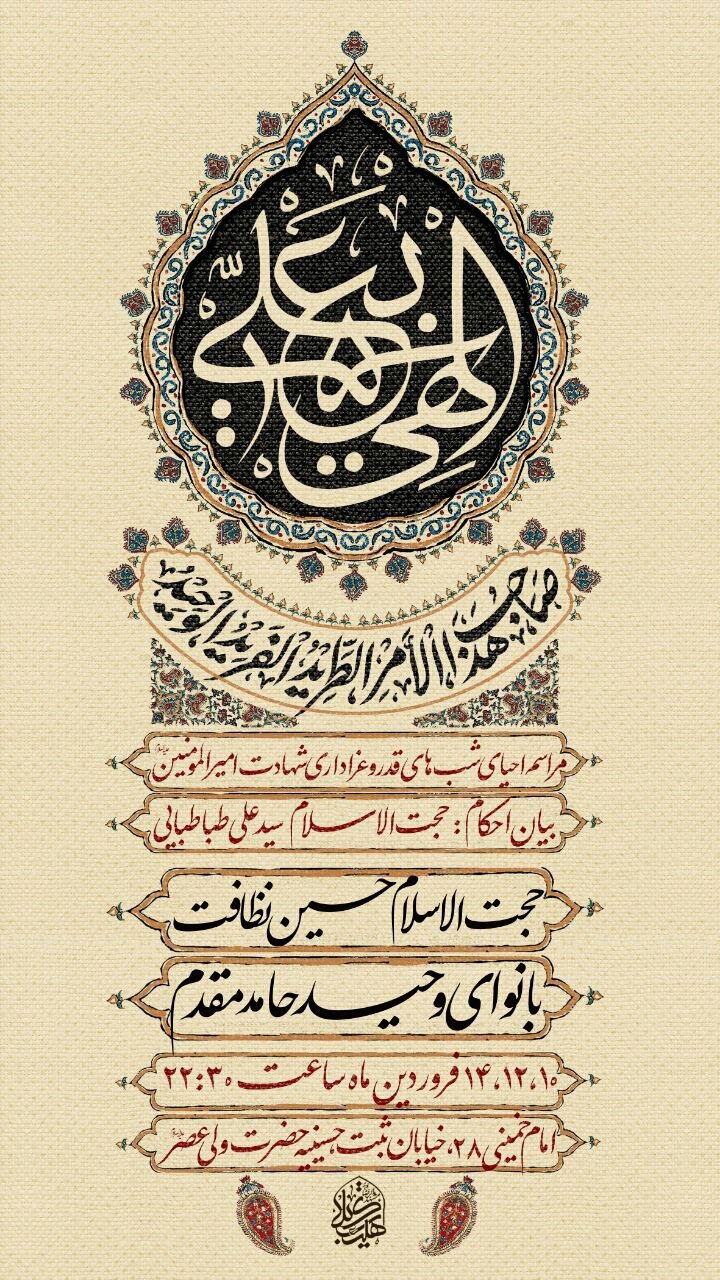 الهی بعلی
صاحب هذا الأمر الطرید الفرید الوحید
مراسم احیای شب های قدر و عزاداری شهادت امیرالمومنین
بیان احکام : حجت الاسلام سید علی طباطبایی
حجت الاسلام حسین نظافت
با نوای وحید حامد مقدم
۱۴،۱۲،۱۰ فروردین ماه ساعت ۲۲:۳۰
امام خمینی ۲۸، خیابان ثبت، حسینیه حضرت ولی عصر